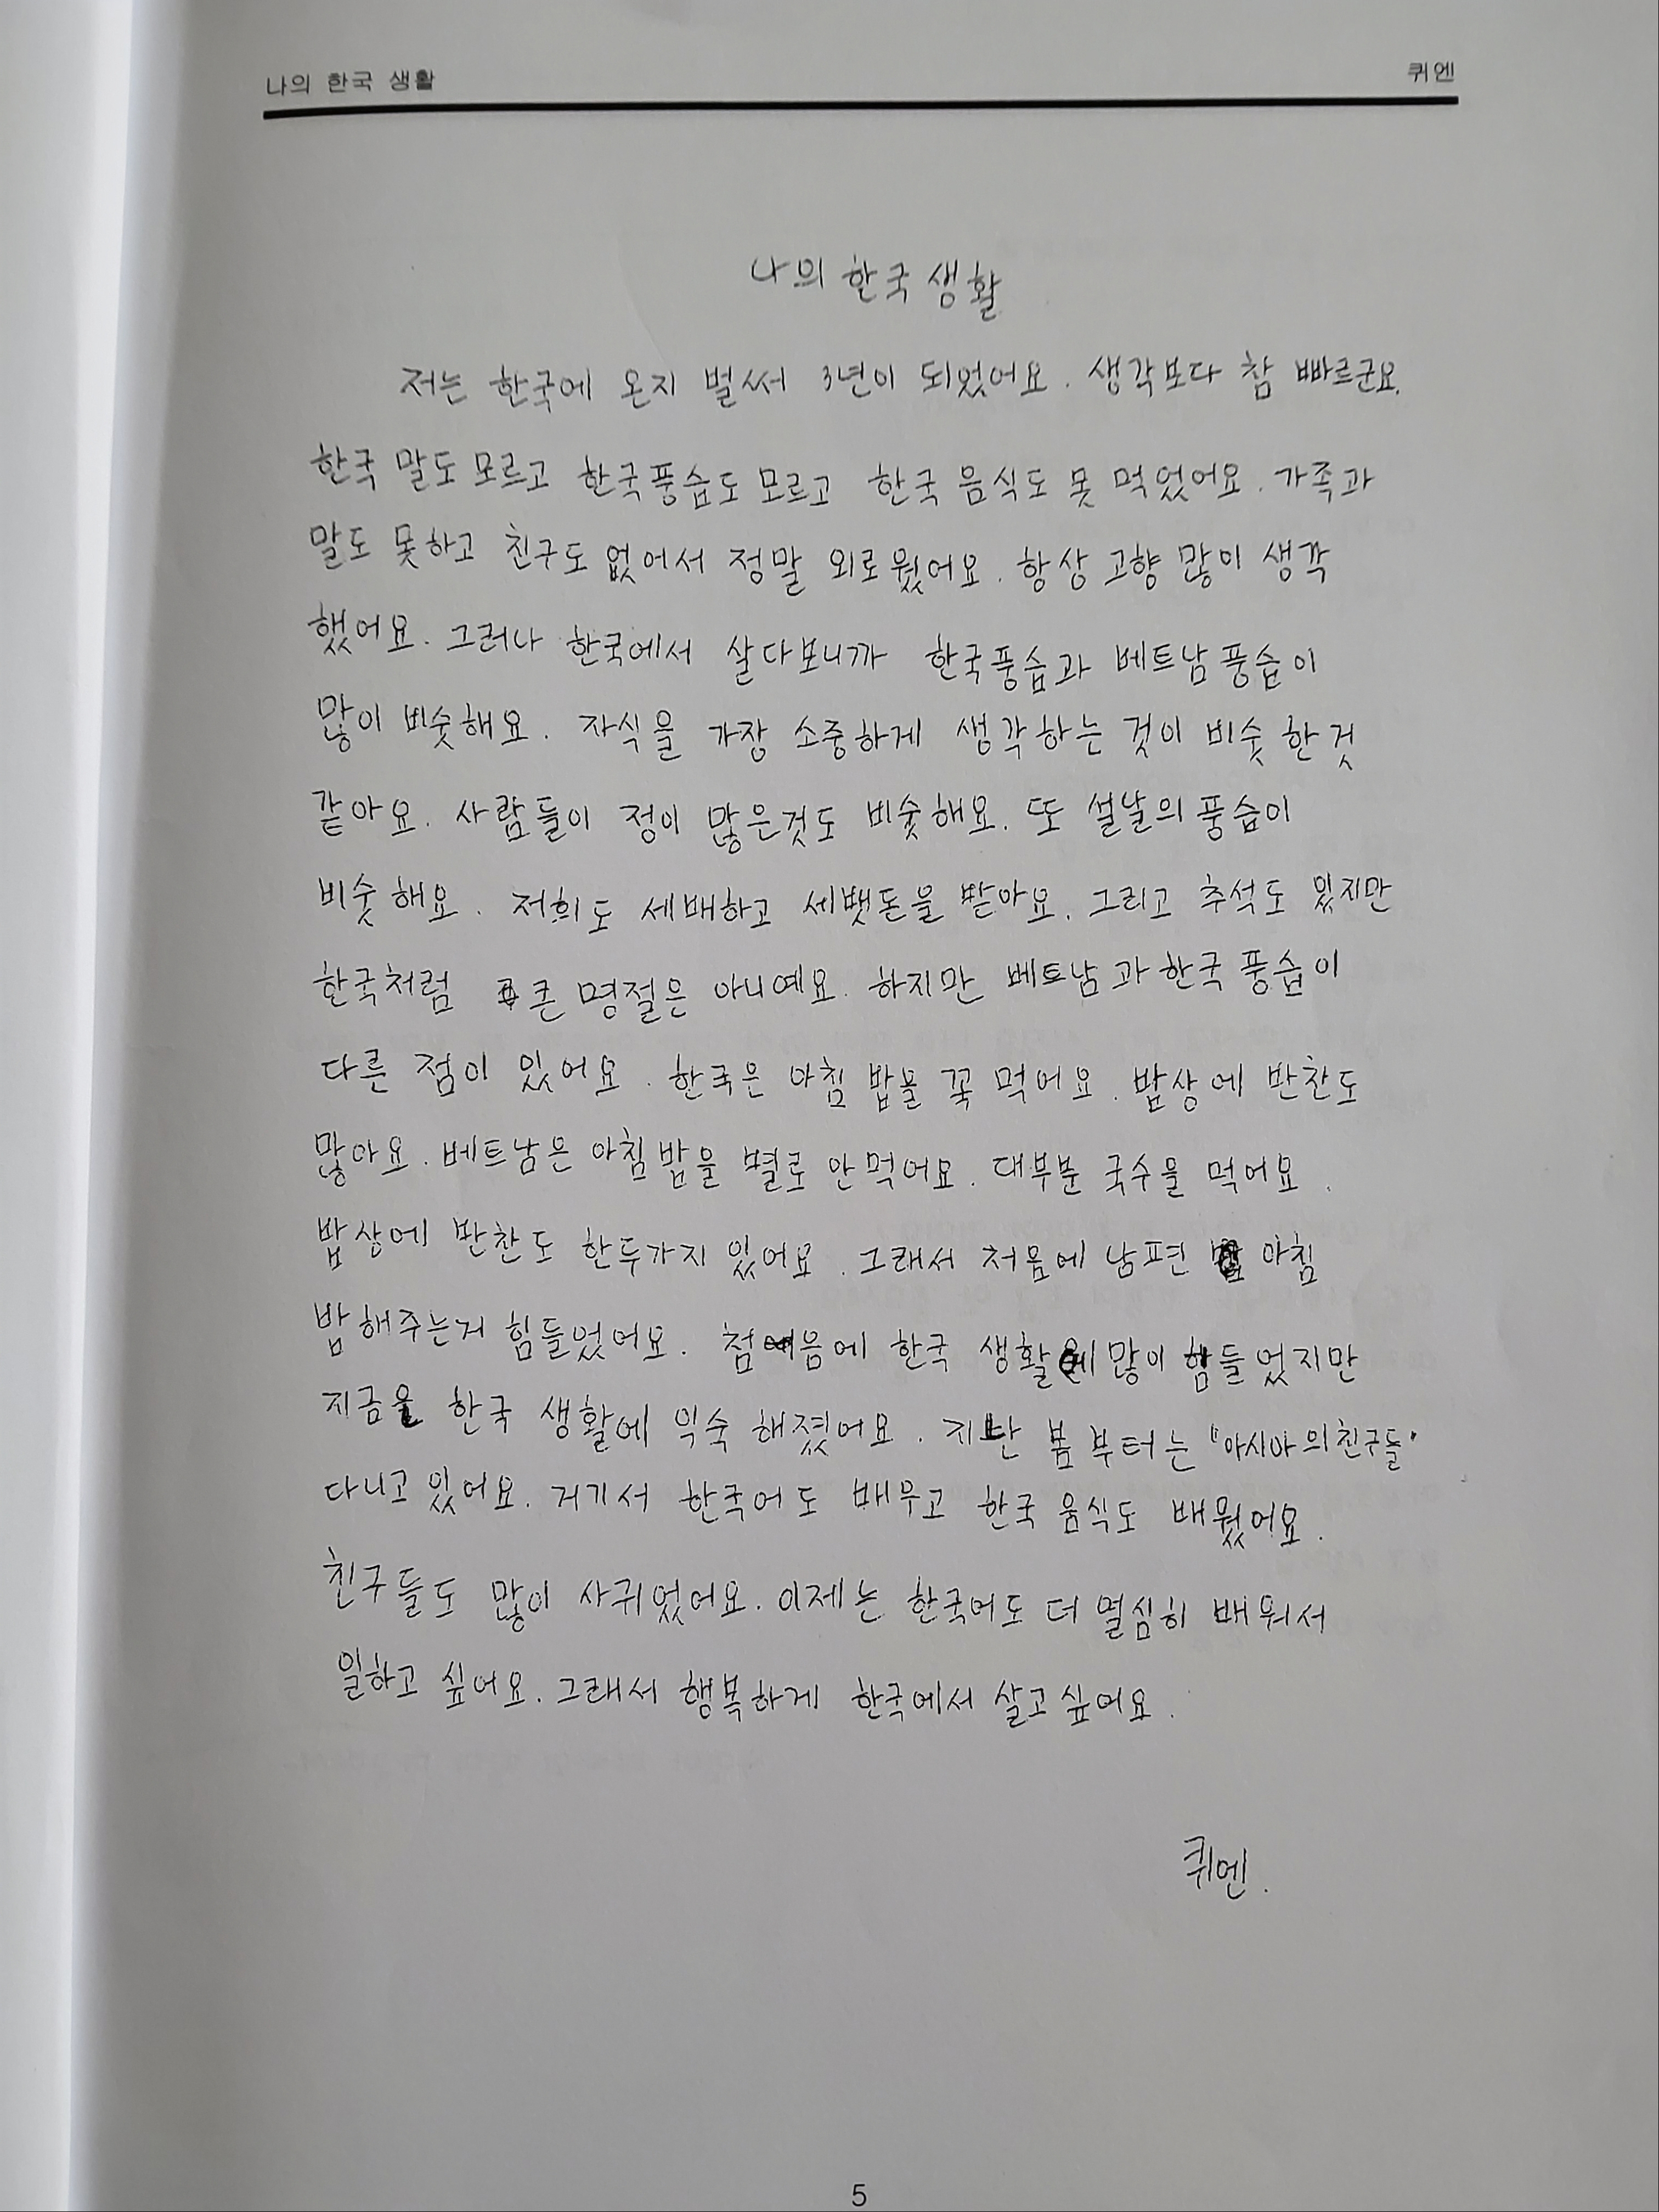 나의 한국 생활
퀴엔
나의 한국 생활
저는 한국에 온지 벌써 3년이 되었어요. 생각보다 참 빠르군요.
한국 말도 모르고 한국풍습도 모르고 한국 음식도 못 먹었어요. 가족과
말도 못하고 친구도 없어서 정말 외로웠어요. 항상 고향 많이 생각
했어요. 그러나 한국에서 살다보니까 한국풍습과 베트남 풍습이
많이 비슷해요. 자식을 가장 소중하게 생각하는 것이 비슷 한것
같아요. 사람들이 정이 많은것도 비슷해요. 또 설날의 풍습이
비슷해요. 저희도 세배하고 세뱃돈을 받아요. 그리고 추석도 있지만
한국처럼 큰 명절은 아니예요. 하지만 베트남과 한국 풍습이
다른 점이 있어요. 한국은 아침 밥을 꼭 먹어요. 밥상에 반찬도
많아요. 베트남은 아침밥을 별로 안먹어요. 대부분 국수을 먹어요.
밥상에 반찬도 한두가지 있어요. 그래서 처음에 남편 아침
밥해주는게 힘들었어요. 첨음에 한국 생활에 많이 힘들었지만
지금은 한국 생활에 익숙 해졌어요. 지난 봄부터는 "아시아의친구들"
다니고 있어요. 거기서 한국어도 배우고 한국 음식도 배웠어요.
친구들도 많이 사귀었어요. 이제는 한국어도 더 열심히 배워서
일하고 싶어요. 그래서 행복하게 한국에서 살고싶어요.
퀴엔.
5